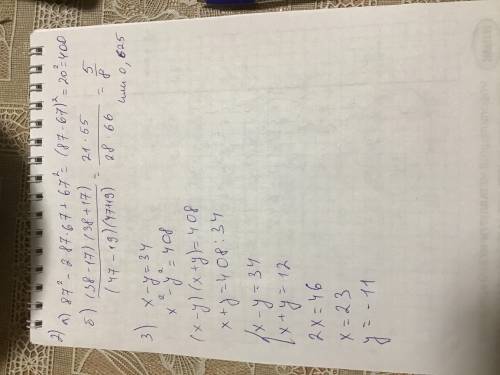 2) а) 87² - 2·87·67 + 67² = (87-67)² = 20² = 400
б) (38-17)(38+17) / (47-19)(47+19) = 21·55 / 28·66 = 5/8
или 0,625
3) x-y=34
x²-y²=408
(x-y)(x+y)=408
x+y=408:34
{x-y=34
{x+y=12
2x=46
x=23
y=-11